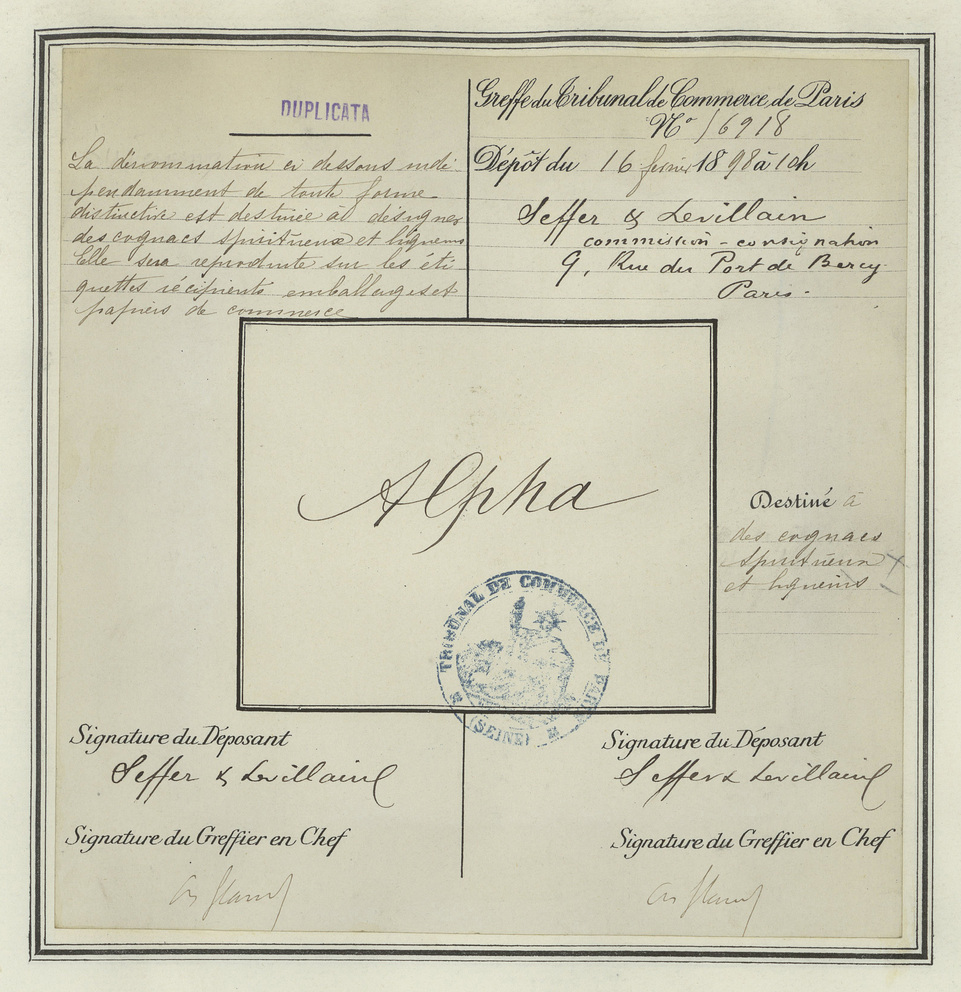 DUPLICATA
La dénomination ci dessous indé-
pendamment de toute forme
distinctive est destinée à désigner
des cognacs spiritueux et liqueurs
Elle sera reproduite sur les éti
quettes récipients emballages et
papiers de commerce
Greffe du Tribunal de Commerce de Paris
N° 56918
Dépôt du 16 février 1898 à 10h
Seffer & Levillain
commission - consignation
9, Rue du Port de Bercy
Paris.
Alpha
Destiné à
des cognacs
spiritueux
et liqueurs
TRIBUNAL DE COMMERCE DE PARIS
(SEINE)
Signature du Déposant
Seffer & Levillain
Signature du Greffier en Chef
Signature du Déposant
Seffer & Levillain
Signature du Greffier en Chef